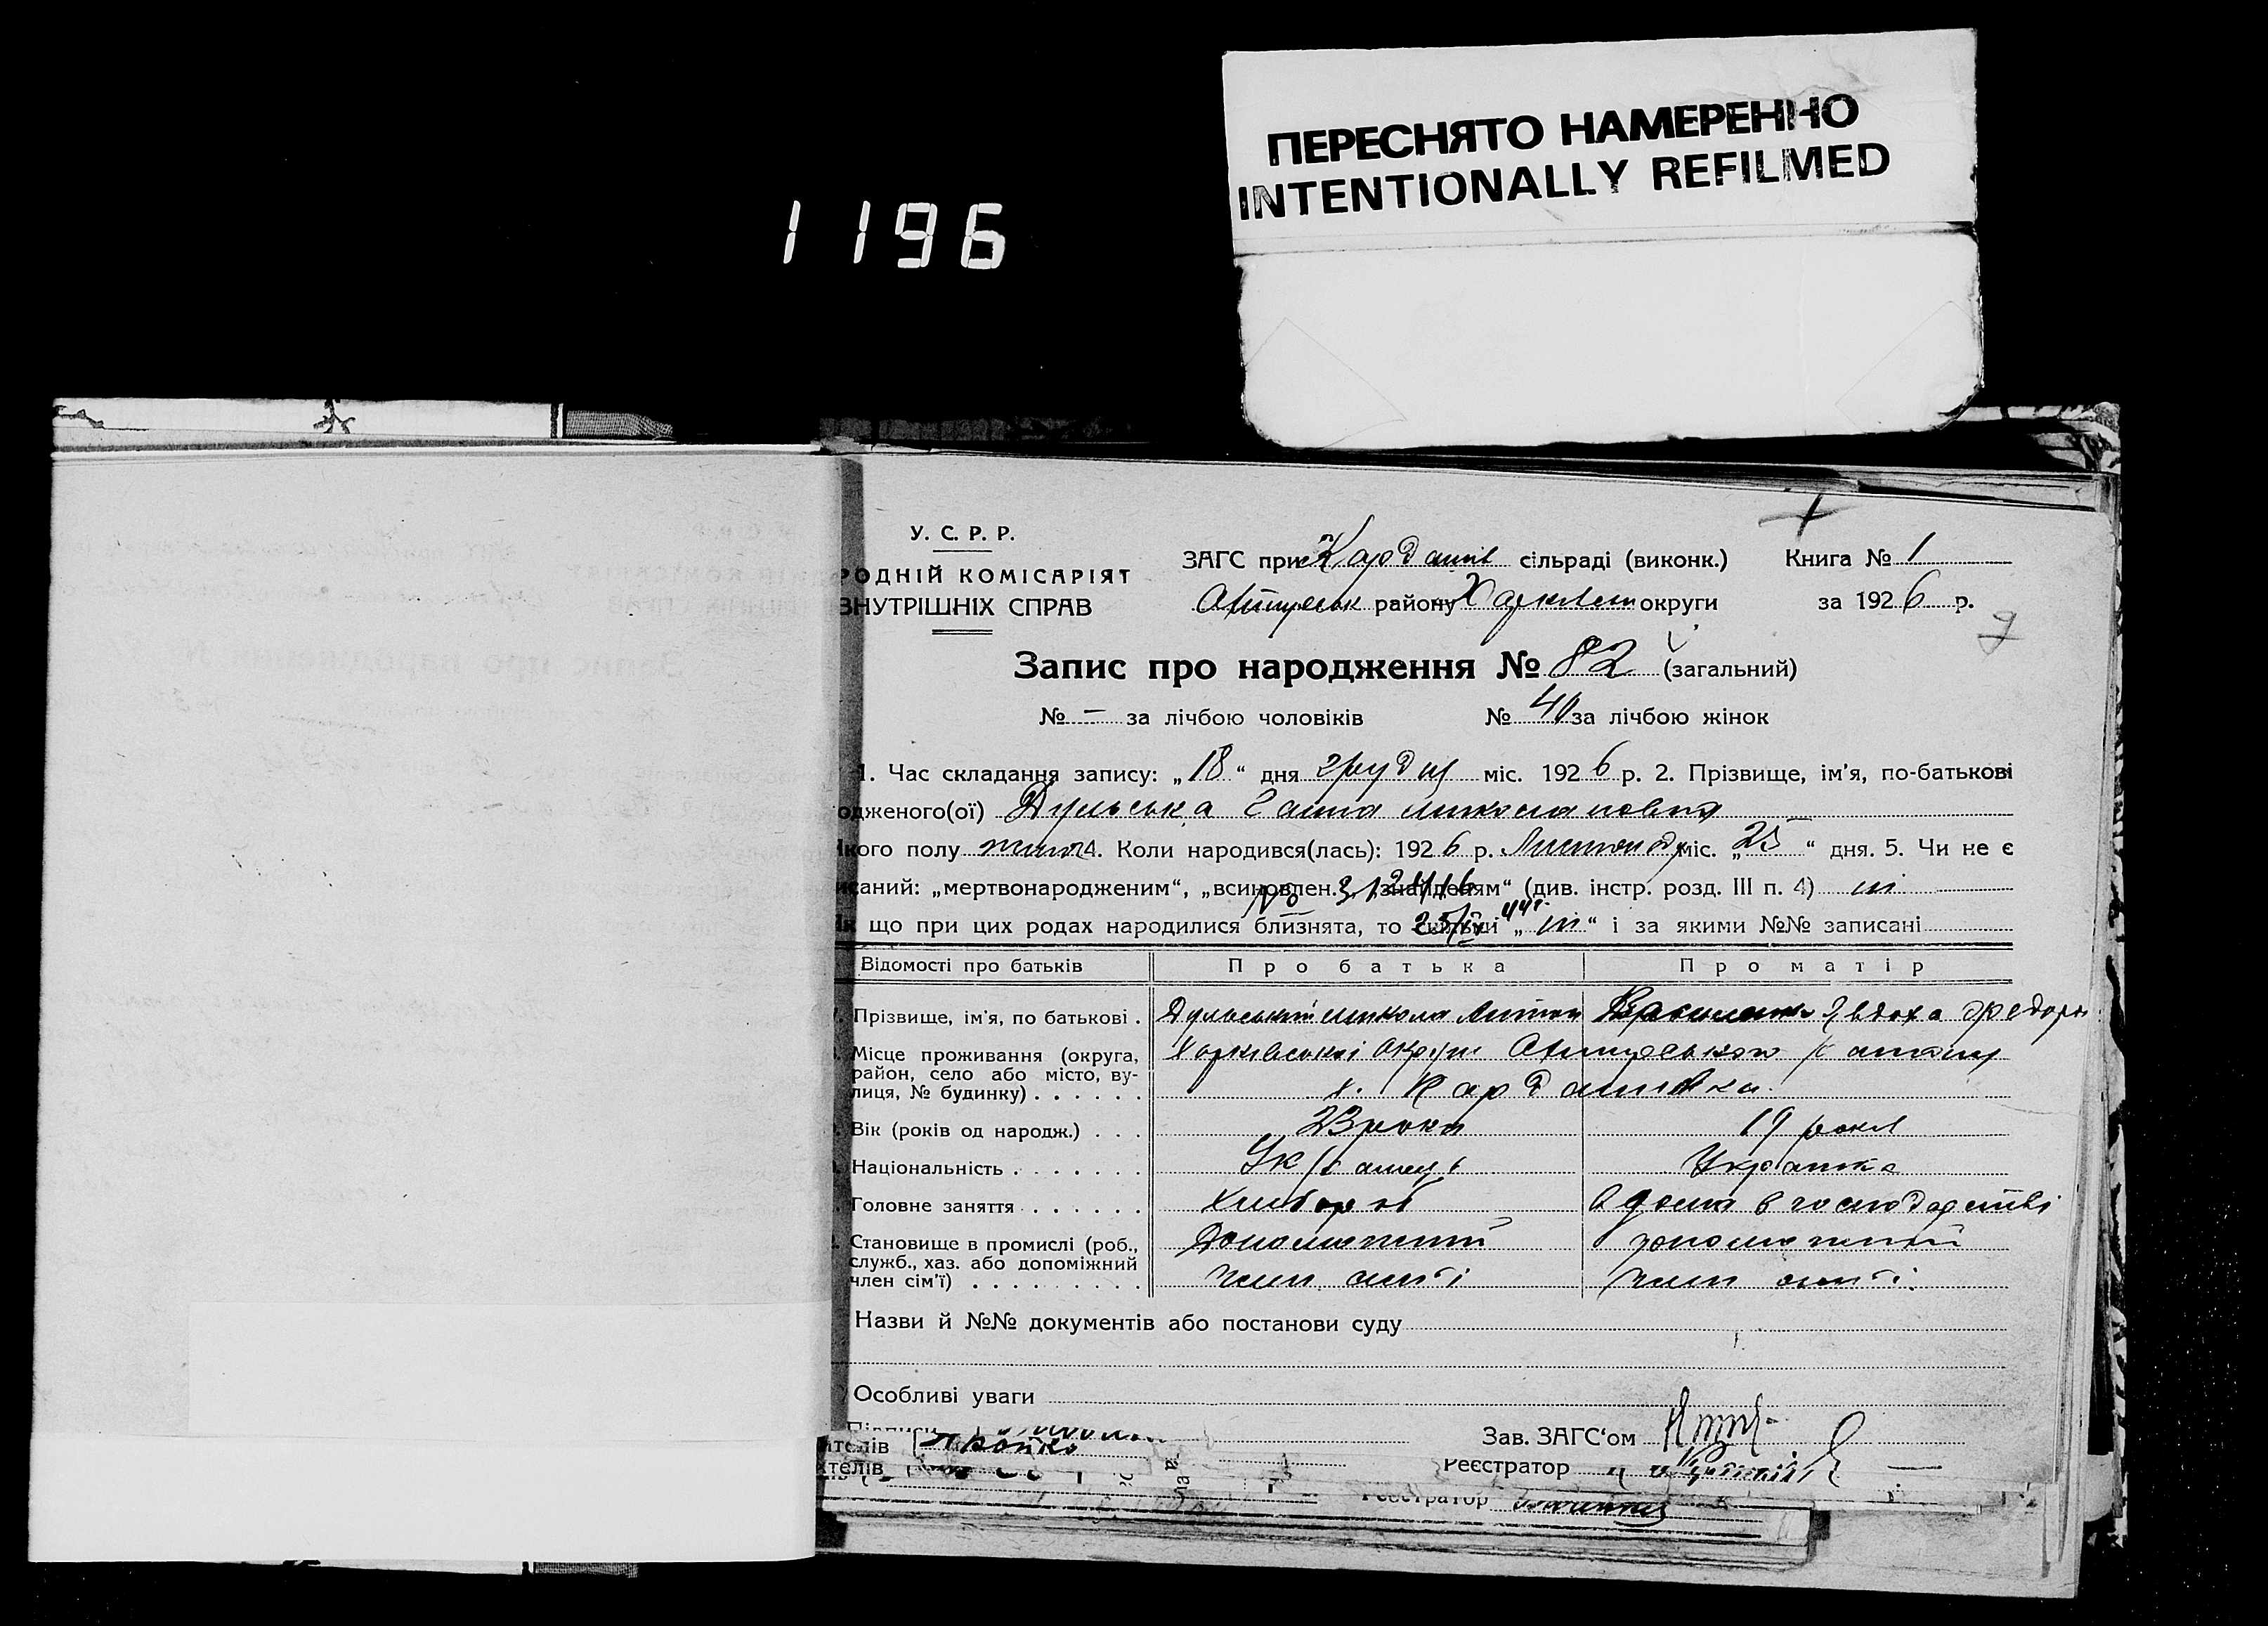 ПЕРЕСНЯТО НАМЕРЕННО
INTENTIONALLY REFILMED
1196
У. С. Р. Р.
РОДНІЙ КОМІСАРІЯТ
ВНУТРІШНІХ СПРАВ
ЗАГС при Кардашів сільраді (виконк.) Книга № 1
району Харківськ округи за 1926 р.
9
Запис про народження № 82 (загальний)
№ — за лічбою чоловіків № 40 за лічбою жінок
1. Час складання запису: „18“ дня грудня міс. 1926 р. 2. Прізвище, ім'я, по-батькові
одженого(ої) Дульська Ганна Миколаповна
якого полу жіноч 4. Коли народився(лась): 1926 р. Листопад міс. „25“ дня. 5. Чи не є
исаний: „мертвонародженим“, „всиновлен.“, „знайденям“ (див. інстр. розд. III п. 4) ні
Як що при цих родах народилися близнята, то скільки „ні“ і за якими №№ записані
Відомості про батьків Про батька Про матір
Прізвище, ім'я, по батькові . Дульський Микола Антон Явдоха Федори
Місце проживання (округа, район, село або місто, вулиця, № будинку) . . . . . . Харківської округи району
х. Кардашівка.
Вік (років од народж.) . . . 23 роки 19 років
Національність . . . . . . . Українець Українка
Головне заняття . . . . . . Хлібороб в дома в господарстві
Становище в промислі (роб., служб., хаз. або допоміжний член сім'ї) . . . . . . . . . Допоміжний член сім'ї допоміжний член сім'ї.
Назви й №№ документів або постанови суду
Особливі уваги
Зав. ЗАГС'ом
ителів
Реєстратор
ителів
Реєстратор